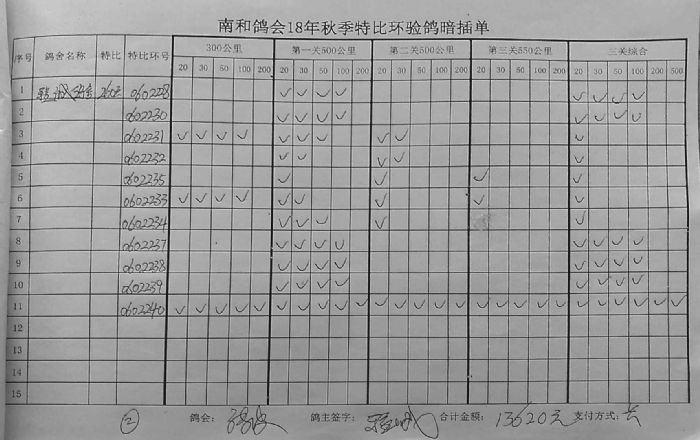 南和鸽会18年秋季特比环验鸽暗插单
序号 鸽舍名称 特比 特比环号 300公里 第一关500公里 第二关500公里 第三关550公里 三关综合
20 30 50 100 200 20 30 50 100 200 20 30 50 100 200 20 30 50 100 200 20 30 50 100 200 500
1 0602228 ✓ ✓ ✓ ✓ ✓ ✓ ✓ ✓
2 0602230 ✓ ✓ ✓ ✓ ✓ ✓ ✓ ✓
3 0602231 ✓ ✓ ✓ ✓ ✓ ✓ ✓ ✓ ✓ ✓
4 0602232 ✓ ✓ ✓ ✓ ✓
5 0602235 ✓ ✓ ✓ ✓
6 0602233 ✓ ✓ ✓ ✓ ✓ ✓ ✓ ✓ ✓
7 0602234 ✓ ✓ ✓ ✓ ✓
8 0602237 ✓ ✓ ✓ ✓ ✓ ✓ ✓ ✓
9 0602238 ✓ ✓ ✓ ✓ ✓ ✓ ✓ ✓
10 0602239 ✓ ✓ ✓ ✓ ✓ ✓ ✓ ✓
11 0602240 ✓ ✓ ✓ ✓ ✓ ✓ ✓ ✓ ✓ ✓ ✓ ✓ ✓ ✓ ✓ ✓ ✓ ✓ ✓ ✓ ✓ ✓ ✓ ✓ ✓ ✓
12
13
14
15
② 鸽会: 鸽主签字: 合计金额: 13620元 支付方式: